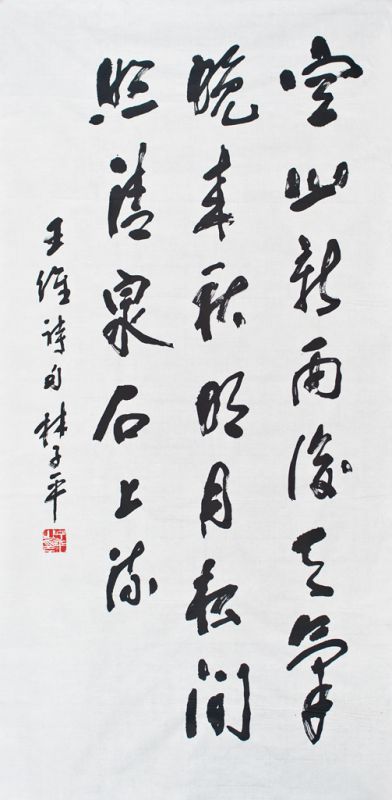 空山新雨後天氣
晚来秋明月松間
照清泉石上流
王維詩句林子平